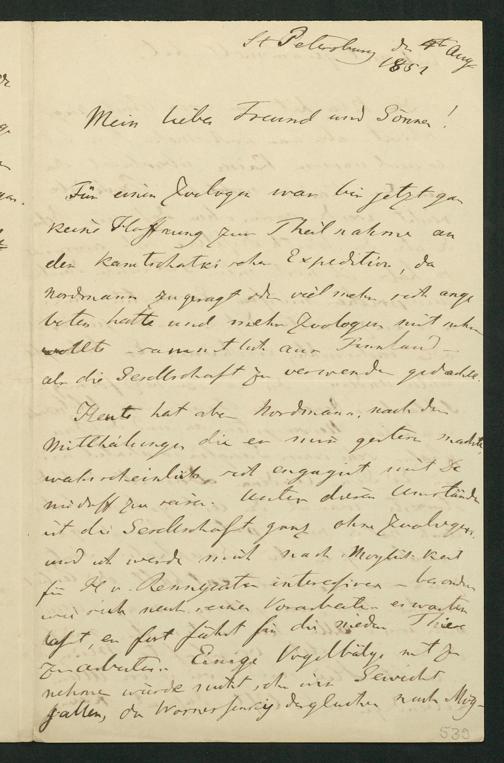 St Petersburg den 4ten Aug
1851
Mein lieber Freund und Gönner!
Für einen Zoologen war bis jetzt gar
keine Hoffnung zur Theilnahme an
der kamtschatkischen Expedition, da
Nordmann zugesagt oder vielmehr sich ange
boten hatte und mehr Zoologen mit nehmen
wollte – sämmtlich aus Finnland –
als die Gesellschaft zu verwenden gedachte.
Heute hat aber Nordmann, nach den
Mittheilungen die er mir gestern machte,
wahrscheinlich sich engagirt mit De
midoff zu reisen. Unter diesen Umständen
ist die Gesellschaft ganz ohne Zoologen,
und ich werde mich nach Möglichkeit
für H v. interessiren – besonders
wie sich nach seinen Vorarbeiten erwarten
läßt, er fort fährt für die niedern Thiere
zu arbeiten. Einige Vogelbälge mit zu
nehmen würde nicht sehr ins Gewicht
fallen, da dergleichen nach Mög-
539